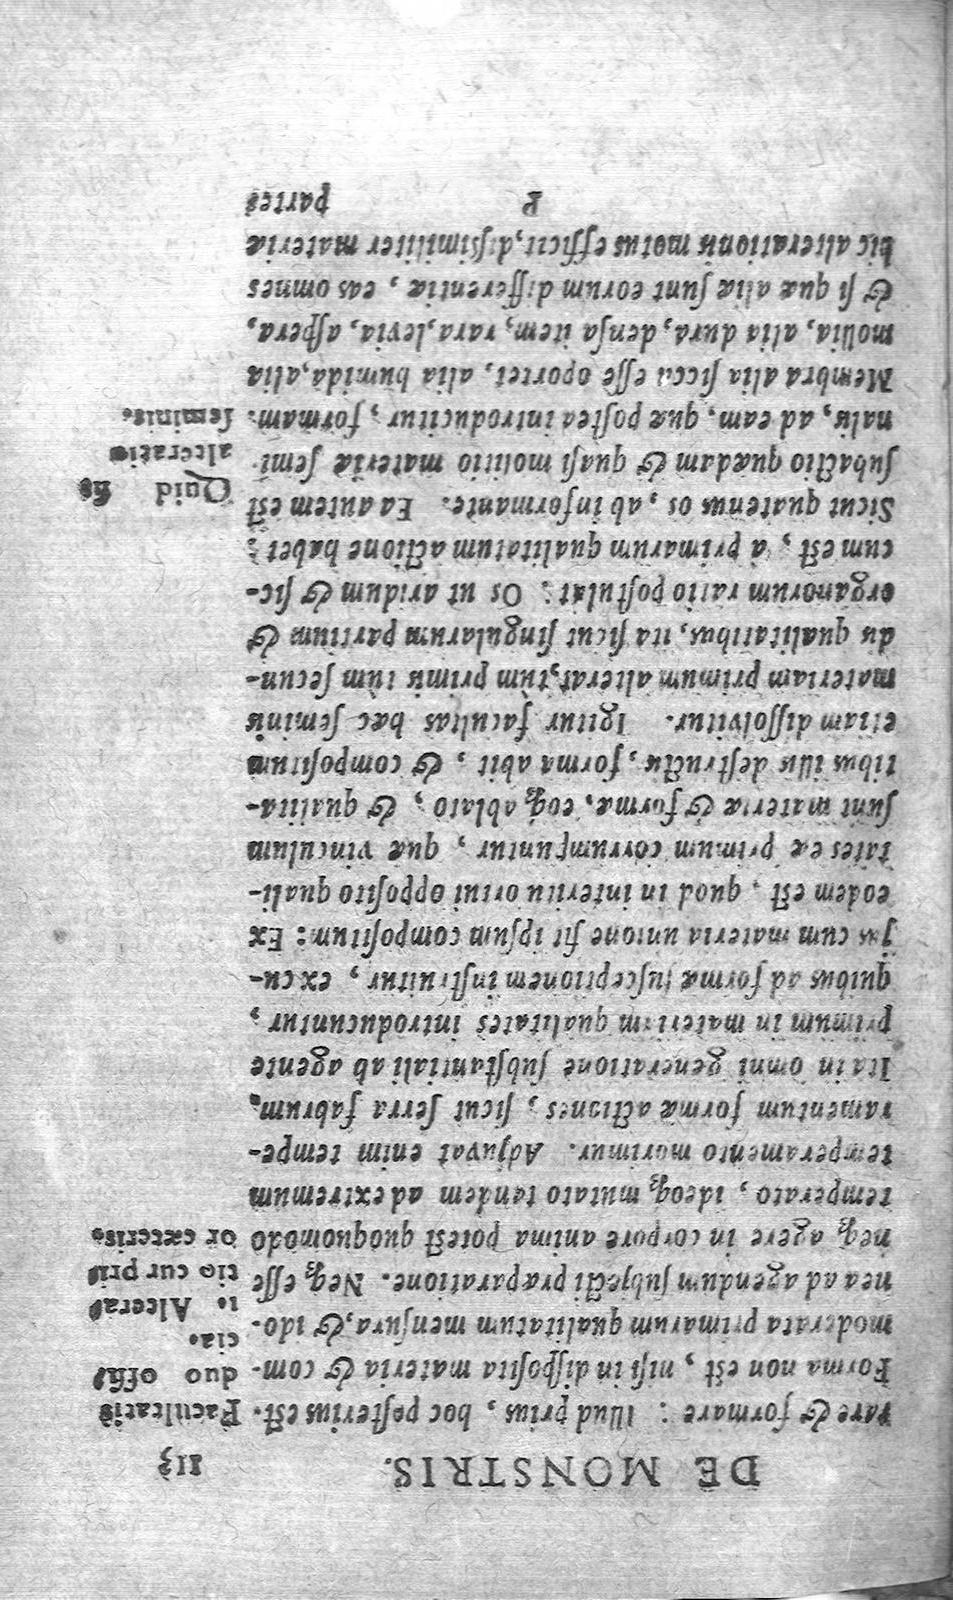 DE MONSTRIS. 113
rare & formare: illud prius, hoc posterius est.
Forma non est, nisi in disposita materia & com-
moderata primarum qualitatum mensura, & ido-
nea ad agendum subjecti præparatione. Neq; esse
neq; agere in corpore anima potest quoquomodo
temperato, ideoq; mutato tandem ad extremum
temperamento morimur. Adjuvat enim tempe-
ramentum formæ actiones, sicut serra fabrum.
Ita in omni generatione substantiali ab agente
primum in materiam qualitates introducuntur,
quibus ad formæ susceptionem instruitur, ex cu-
jus cum materia unione fit ipsum compositum: Ex
eodem est, quod in interitu ortui opposito quali-
tates eæ primum corrumpuntur, quæ vinculum
sunt materiæ & formæ, eoq; ablato, & qualita-
tibus illis destructis, forma abit, & compositum
etiam dissolvitur. Igitur facultas hæc seminis
materiam primum alterat, tùm primis tùm secun-
dis qualitatibus, ita sicut singularum partium &
organorum ratio postulat: Os ut aridum & sic-
cum est, à primarum qualitatum actione habet:
Sicut quatenus os, ab informante. Ea autem est
subactio quædam & quasi molitio materiæ semi-
nalis, ad eam, quæ postea introducitur, formam.
Membra alia sicca esse oportet, alia humida, alia
mollia, alia dura, densa item, rara, levia, aspera,
& si quæ aliæ sunt eorum differentiæ, eas omnes
hic alterationis motus efficit, dissimiliter materiæ
P partes
Facultatis
duo offi-
cia.
1. Altera-
tio cur pri-
or cæteris.
Quid sit
alteratio
seminis.